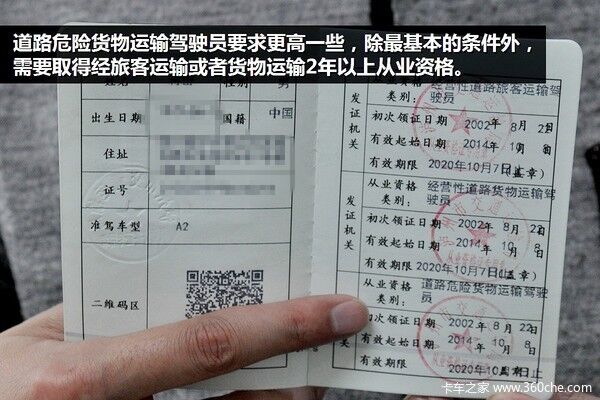 道路危险货物运输驾驶员要求更高一些，除最基本的条件外，
需要取得经旅客运输或者货物运输2年以上从业资格。
男
出生日期
国籍
中国
住址
证号
准驾车型
A2
二维码区
发证机关
类别：
经营性道路旅客运输驾驶员
初次领证日期 2002年8月22
有效起始日期 2014年10月8
有效期限 2020年10月7日止
（盖章）
发证机关
从业资格类别：
经营性道路货物运输驾驶员
初次领证日期 2002年8月22
有效起始日期 2014年10月8
有效期限 2020年10月7日止
（盖章）
从业资格类别：
道路危险货物运输驾驶员
初次领证日期 2002年8月22日
有效起始日期 2014年10月8
有效期限 2020年10月
卡车之家 www.360che.com